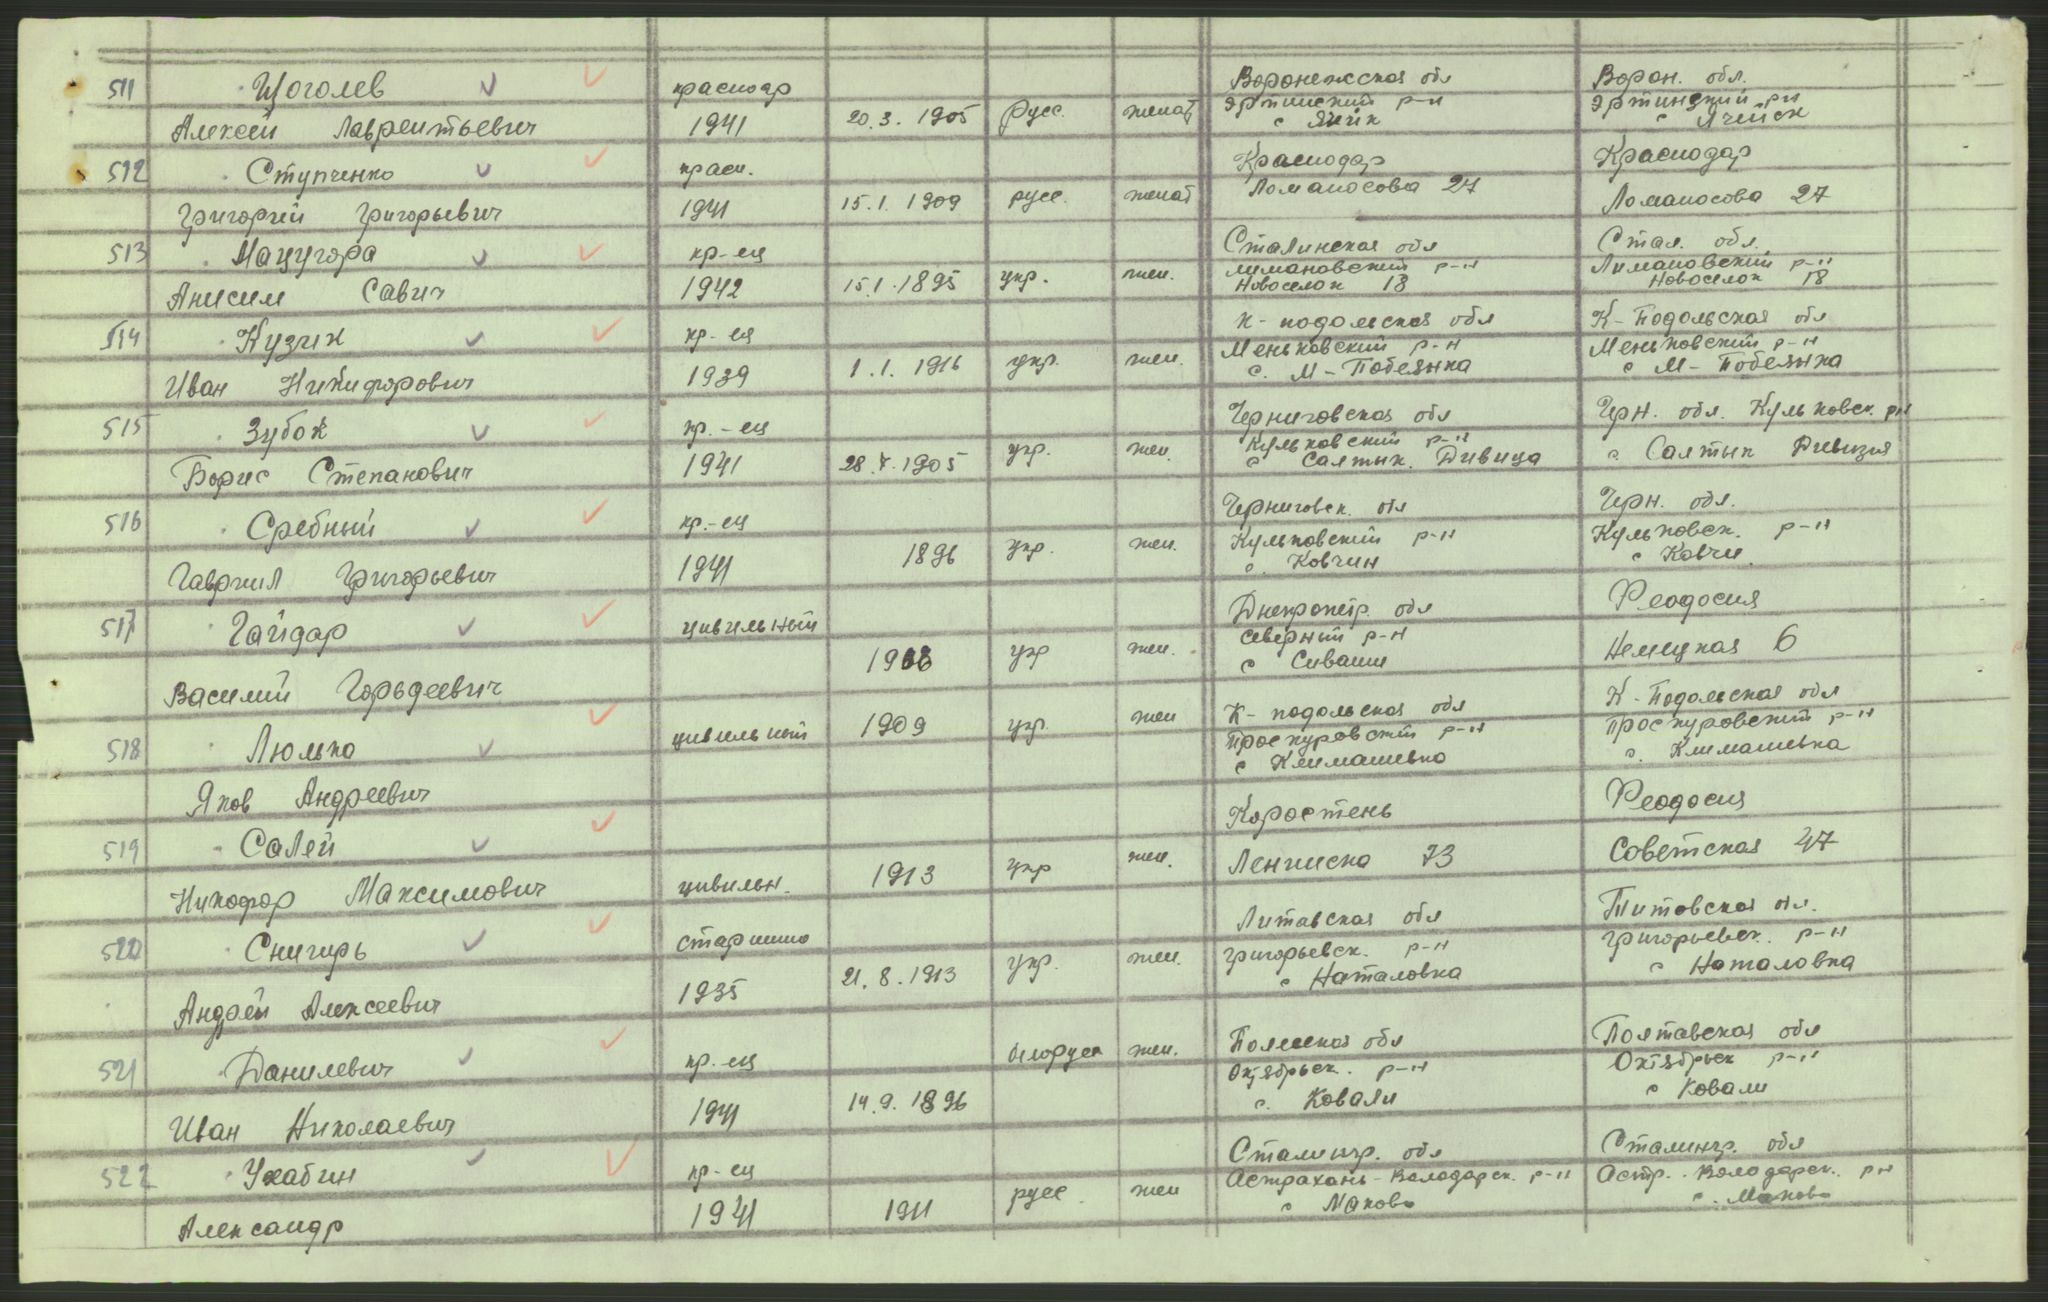 511 Щоголев краснодр Воронежская обл Ворон. обл.
Алексей Лаврентьевич 1941 20.3.1905 русс. женат Эртинский р-н Эртинский р-н
с Яйик с Ячейск
512 Ступченко красн. Краснодар Краснодар
Григорий Григорьевич 1941 15.1.1909 русс. женат Ломаносова 27 Ломаносова 27
513 Мацугора кр-ец Сталинская обл Стал. обл.
Анисим Савич 1942 15.1.1895 укр. жен. Лимановский р-н Лимановский р-н
Новоселок 18 Новоселок 18
514 Кузик кр-ец К-подольская обл К-Подольская обл
Иван Никифорович 1939 1.1.1916 укр. жен. Меньковский р-н Меньковский р-н
с. М-Побеянка с М-Побеянка
515 Зубок кр.-ец Черниговская обл Черн. обл. Кульковск. рн
Борис Степанович 1941 28.7.1905 укр. жен. Кульковский р-н
с Салтык. Дивица с Салтык Дивизия
516 Сребный кр.-ец Черниговск. обл Черн. обл.
Гавриил Григорьевич 1941 1896 укр. жен. Кульковский р-н Кульковск. р-н
с. Ковчин с Ковчи.
517 Гайдар цивильный Днепропетр. обл Феодосия
Василий Гордеевич укр жен. северный р-н Немецкая 6
с Сиваши
518 Люлько цивильный 1909 укр. жен К-подольская обл К-Подольская обл
Яков Андреевич Проскуровский р-н Проскуровский р-н
с Климашевко с. Климашевка
519 Салей Коростень Феодосия
Никофор Максимович цивильн. 1913 укр жен. Ленинско 73 Советская 47
520 Снигирь старшино Литавская обл Титовская обл.
Андрей Алексеевич 1935 21.8.1913 укр. жен. Григорьевск. р-н Григорьевск. р-н
с Наталовка с Наталовка
521 Данилевич кр.-ец белоруск жен. Полеская обл Полтавская обл
Иван Николаевич 1941 14.9.1896 Октябрьск. р-н Октябрьск р-н
с. Ковали с Ковали
522 Ухабин кр-ец Сталингр. обл Сталингр. обл
Александр 1941 1911 русс. жен Астрахань-Володарск. р-н Астр.-Володарск. рн
с Маково с. Маково